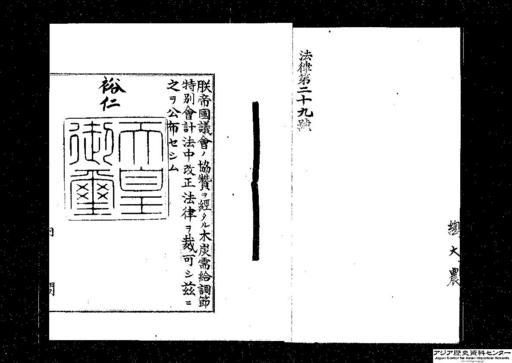 法律第二十九號
大農
朕帝國議會ノ協賛ヲ經タル木炭需給調節
特別會計法中改正法律ヲ裁可シ茲ニ
之ヲ公布セシム
裕仁
天皇
御璽
アジア歴史資料センター
Japan Center for Asian Historical Records